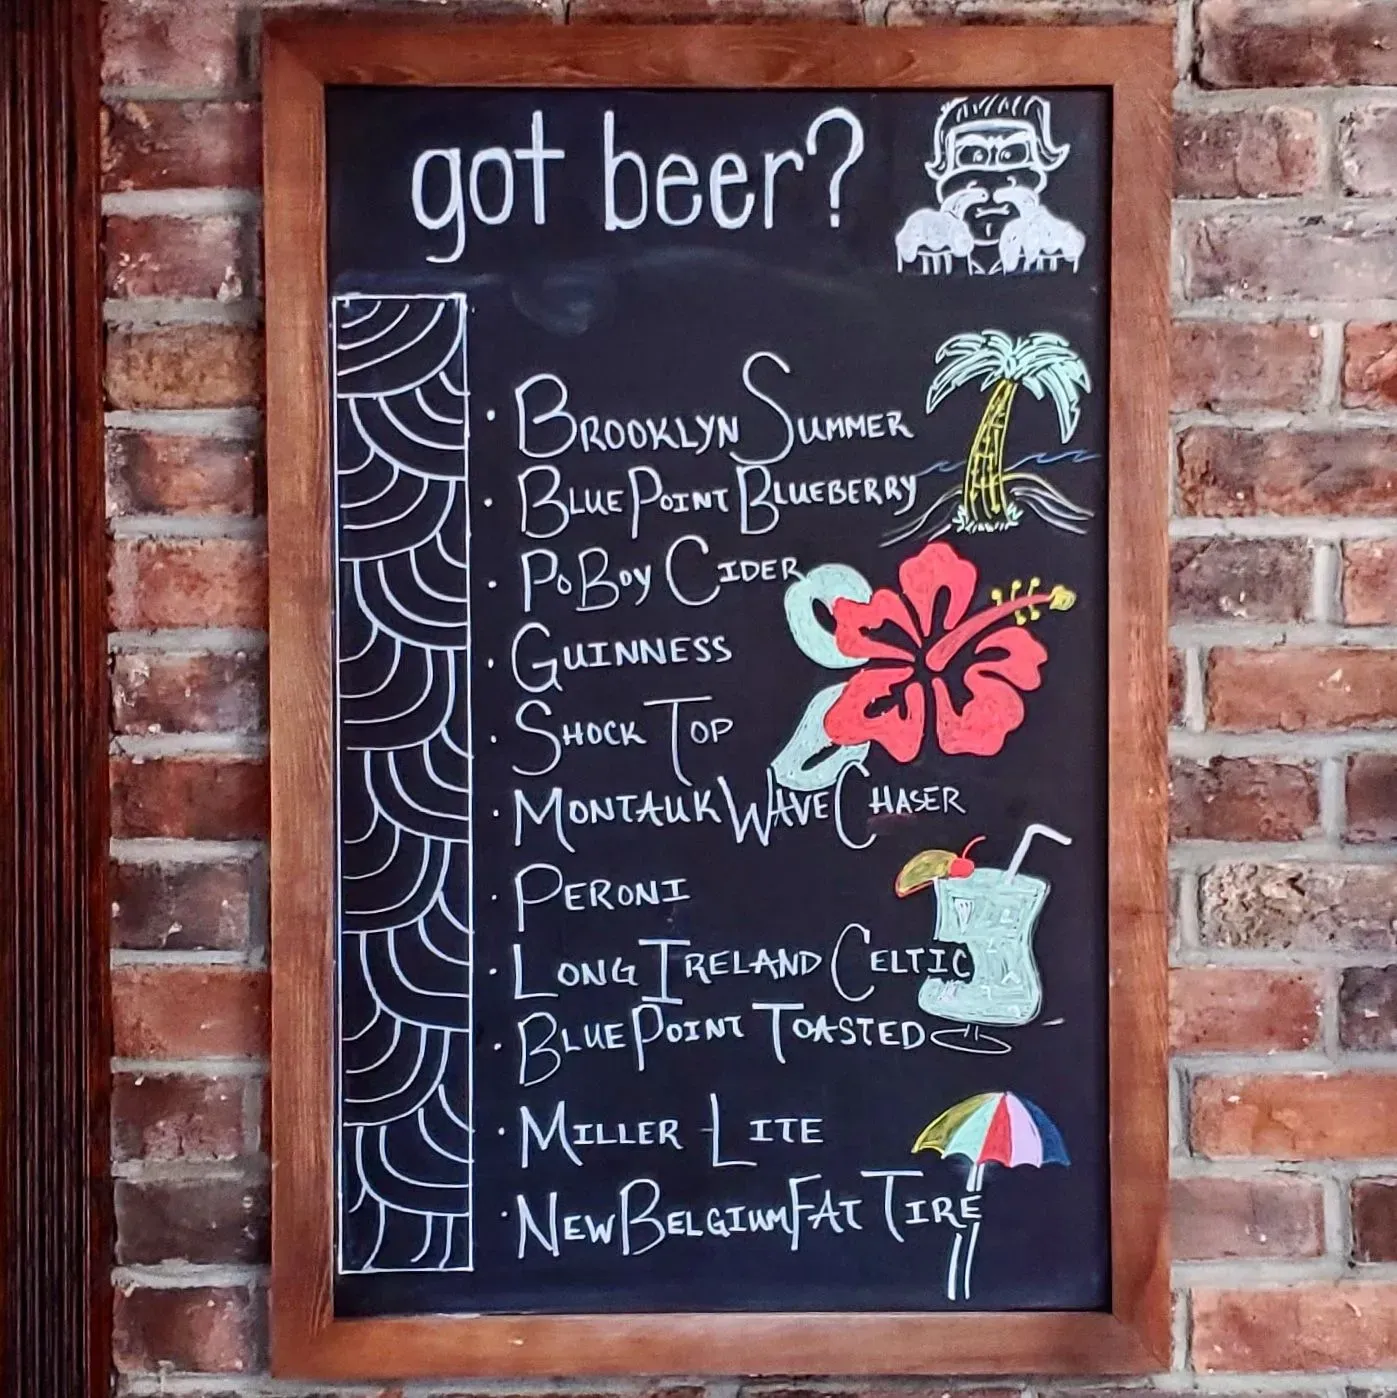 got beer?
· BROOKLYN SUMMER
· BLUE POINT BLUEBERRY
· PoBoy CIDER
· GUINNESS
· SHOCK TOP
· MONTAUK WAVE CHASER
· PERONI
· LONG IRELAND CELTIC
· BLUE POINT TOASTED
· MILLER LITE
· NEW BELGIUM FAT TIRE